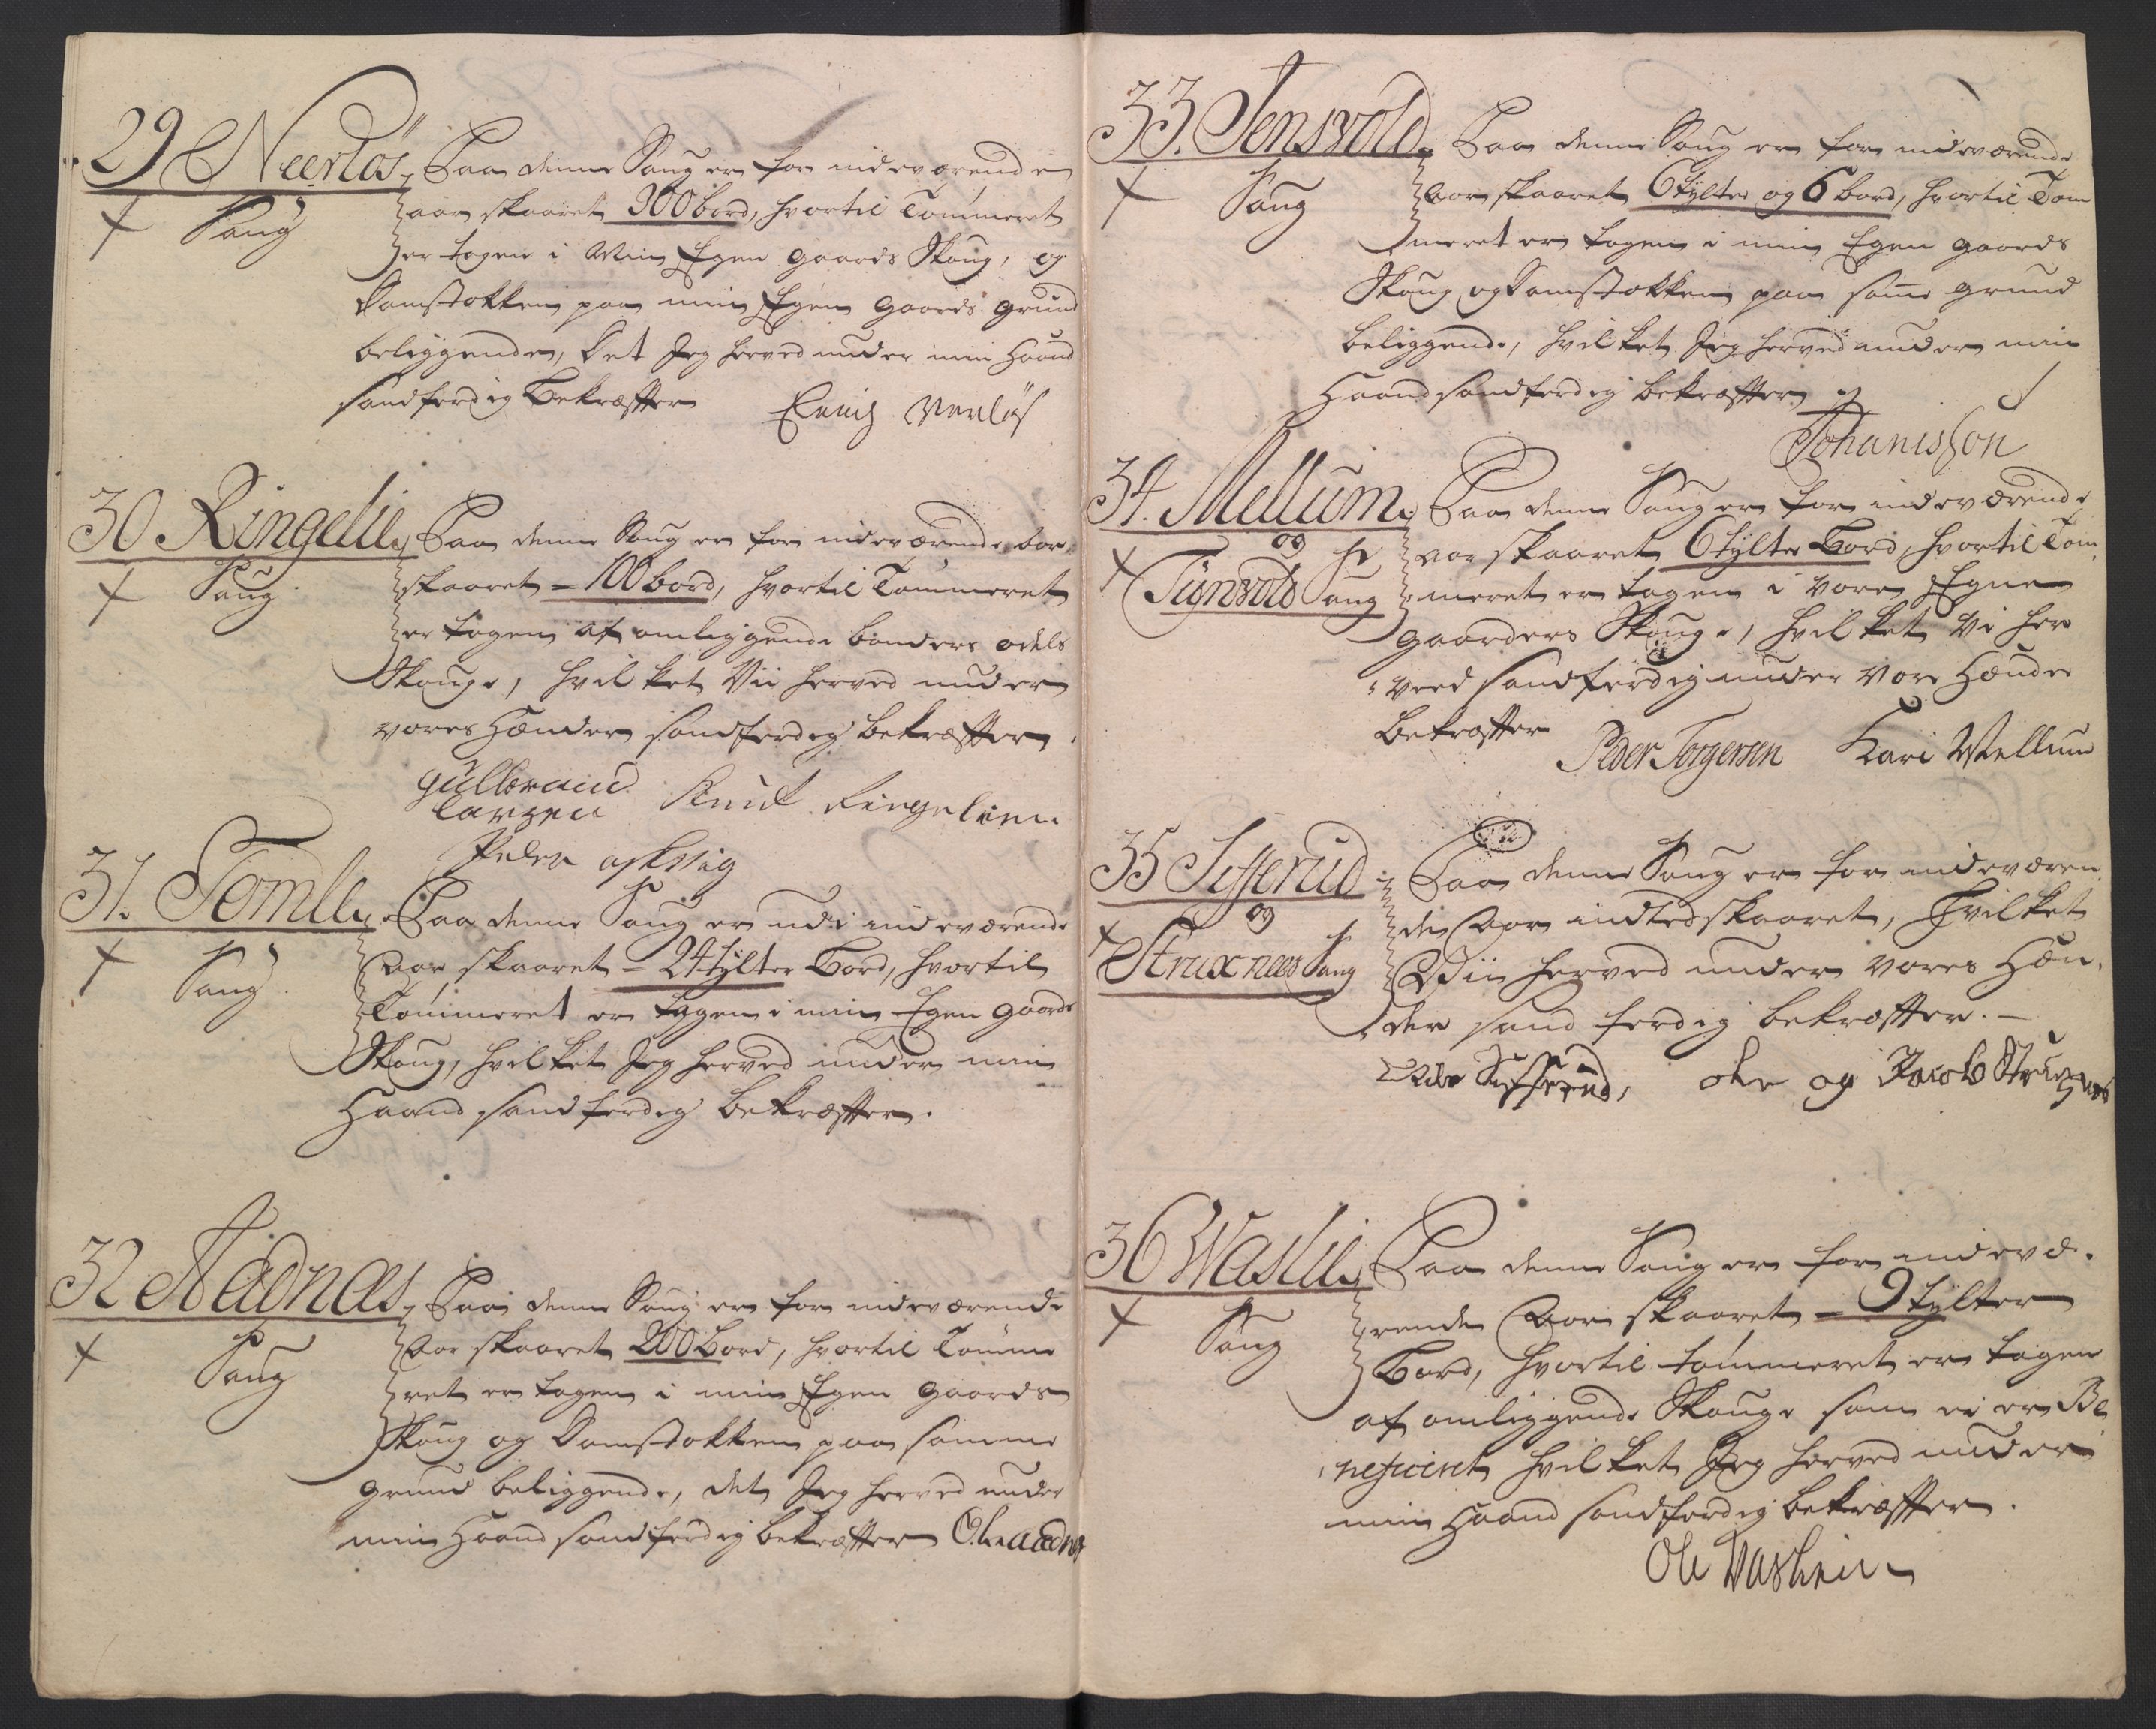 29 Neerløs Paa denne Saug er for indeværende
Saug
aar skaaret 300 bord, hvortil Tømmeret
er tagen i Min Egen gaards Skoug, og
Damstokken paa min Egen gaards grund
beliggende, Det Jeg herved under min Haand
sandferdig Bekræfter
30 Ringelie Paa denne Saug er for indeværende aar
Saug
skaaret = 100 bord, hvortil Tømmeret
er tagen af omliggende bønders odels
Skouge, hvilket Vii herved under
vores Hænder sandferdig bekræfter.
Gulbrand Knut Ringelien
Larsen
Peder
31. Tomle Paa denne Saug er udi indeværende
Saug
Aar skaaret = 24 tylter Bord, hvortil
Tømmeret er tagen i min Egen gaards
Skoug, hvilket Jeg herved under min
Haand sandferdig bekræfter.
32 Aadnæs Paa denne Saug er for indeværende
Saug
Aar skaaret 200 Bord, hvortil Tømme
ret er tagen i min Egen gaards
Skoug og Damstokken paa samme
grund beliggende, det Jeg herved under
min Haand sandferdig bekræfter Ole aadnes
33. Jensvold Paa denne Saug er for indeværende
Saug
Aar skaaret 6 tylter og 6 bord, hvortil Tøm
meret er tagen i min Egen gaards
Skoug og Damstokken paa same grund
beliggende, hvilket Jeg herved under min
Haand sandferdig bekræfter
Johanisson
34. Mellum Paa denne Saug er for indeværende
og
Tignvold Saug
aar skaaret 6 tylter Bord, hvortil Tøm
meret er tagen i vore Egne
gaarders Skouge, hvilket Vi her
ved sandferdig under vore Hænder
Bekræfter Peder Torgersen Kari Mellum
35 Sifferud Paa denne Saug er for indeværen
og
Struxnæs Saug
de Aar indted skaaret, hvilket
Vii herved under vores Hæn,
der sand ferdig bekræfter. –
Sifferud, ole og Jacob Struxnæs
36 Waslie Paa denne Saug er for indevæ,
Saug
rende Aar skaaret = 9 tylter
Bord, hvortil tømmeret er tagen
af omliggende Skouge som ei er Be
neficeret hvilket Jeg herved under
min Haand sandferdig bekræfter.
Ole Waslien